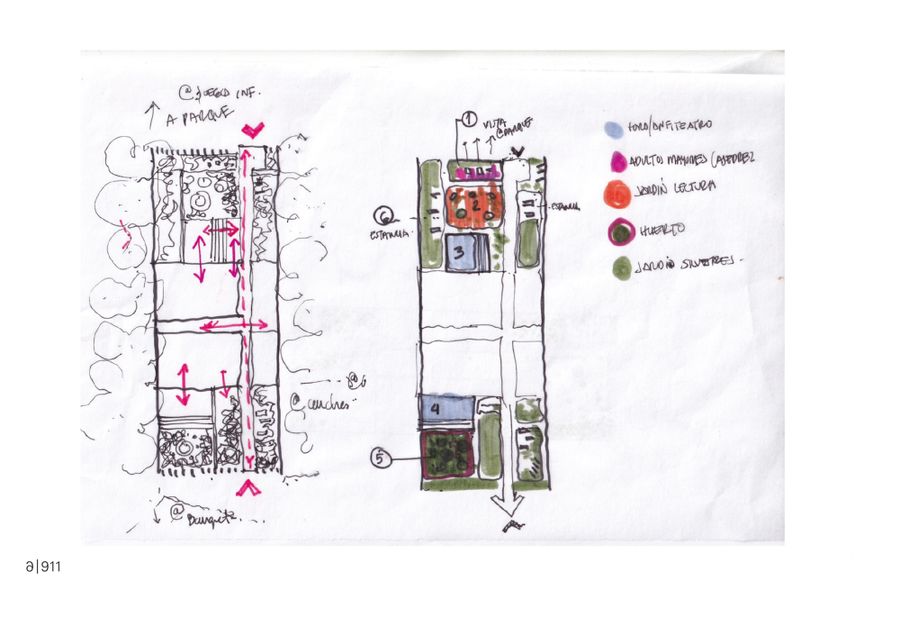 @ JUEGO INF.
A PARQUE
@ Banqueta
1
VISTA
@ PARQUE
6
ESTANCIA
ESTANCIA
1
2
3
4
5
FORO/ANFITEATRO
ADULTOS MAYORES (AJEDREZ
JARDÍN LECTURA
HUERTO
JARDÍN SILVESTRES.
∂|911